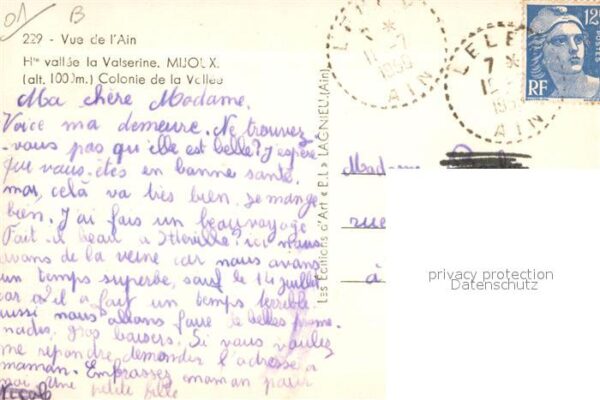 01 B
229 - Vue de l'Ain
Hte vallée la Valserine. MIJOUX.
(alt. 1000m.) Colonie de la Vallée
Ma chère Madame.
Voice ma demeure. Ne trouvez
-vous pas qu'elle est belle? J'espère
que vous êtes en bonne santé.
moi, celà va très bien, je mange
bien. J'ai fais un beau voyage
Fait il beau a ? ici nous
avons de la veine car nous avons
un temps superbe, sauf le 14 juillet
car il a fait un temps terrible
aussi nous allons faire de belles prome
nades, gros baisers. Si vous voulez
me répondre, demander l'adresse a
maman. Embrassez maman pour
moi une petite belle
Nicole
Les Editions d'Art « E.L » LAGNIEU (Ain)
LELEX
7 *
12 -7
1950
AIN
LELEX
7 *
12 -7
AIN
12F
POSTES
RF
Mad
rue
à
privacy protection
Datenschutz